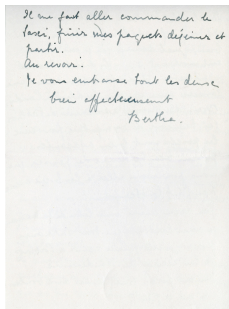 Il me faut aller commander le
taxi, finir mes paquets déjeuner et
partir.
Au revoir.
Je vous embrasse tout les deux
bien affectueusement
Berthe.